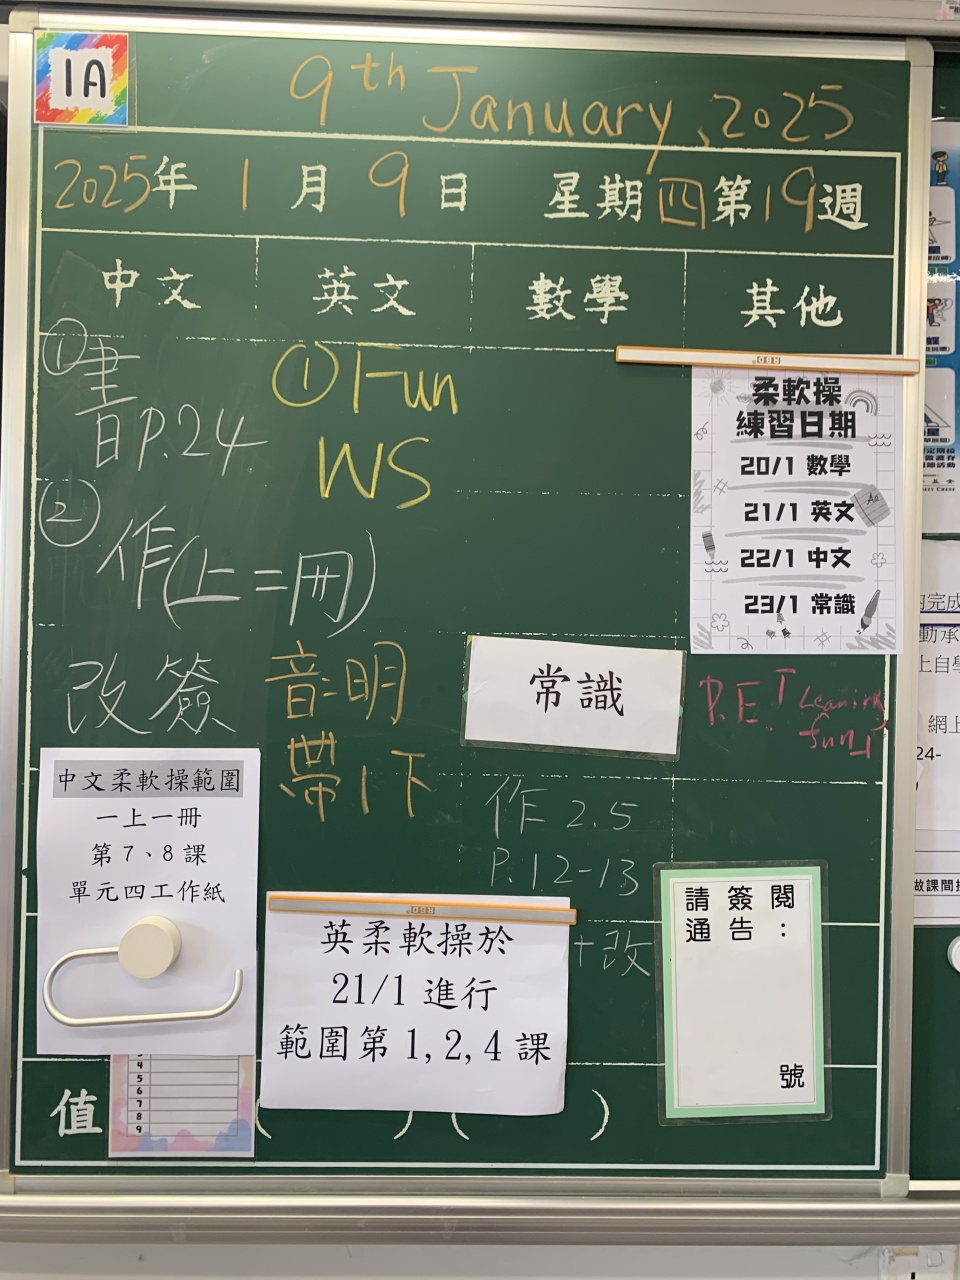 1A
9th January, 2025
2025年 1月 9日 星期四 第19週
中文 英文 數學 其他
①書
P.24
② 作(上=冊)
改簽
① Fun
WS
音:明
帶1下
柔軟操
練習日期
20/1 數學
21/1 英文
22/1 中文
23/1 常識
常識
作 2.5
P.12-13
+改
P.E.「Learning
fun」
中文柔軟操範圍
一上一冊
第7、8課
單元四工作紙
英柔軟操於
21/1 進行
範圍第 1, 2, 4 課
請簽閱
通告：
號
值
4
5
6
7
8
9
( ) ( )